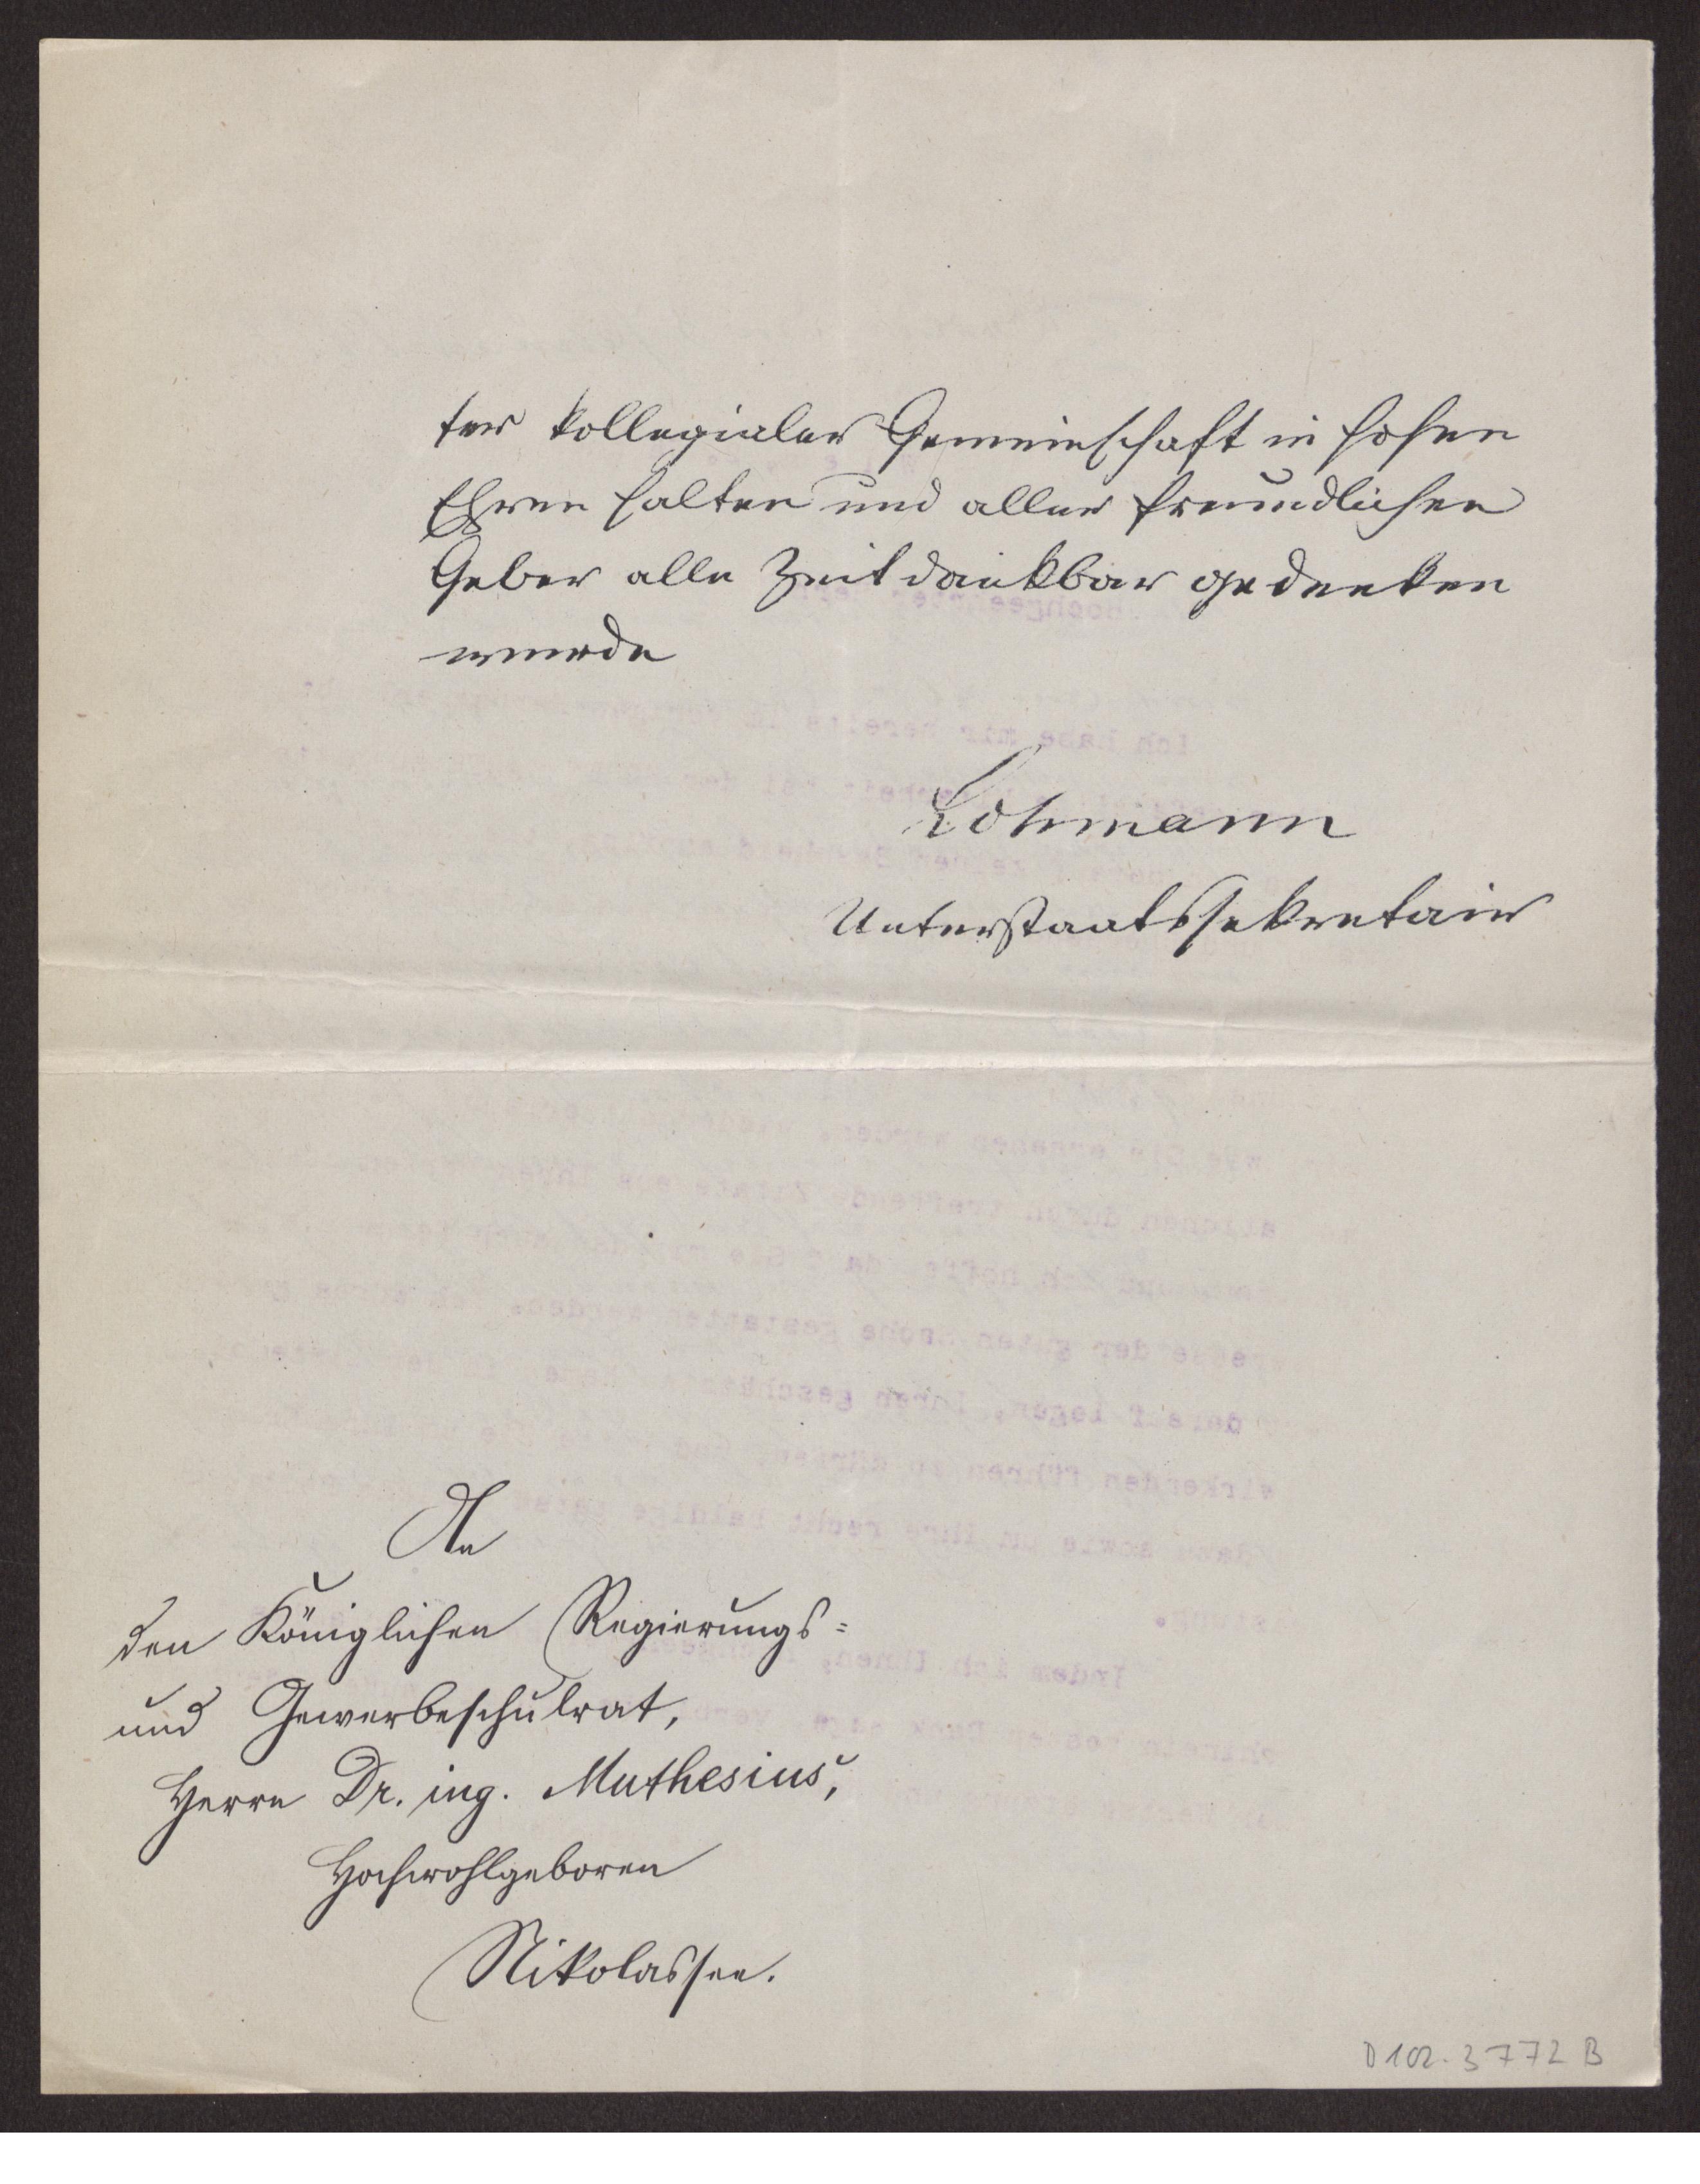 ter kollegialer Gemeinschaft in hohen
Ehren halten und aller freundlichen
Geber alle Zeit dankbar gedenken
werde
Lohmann
Unterstaatssekretair
An
den Königlichen Regierungs=
und Gewerbeschulrat,
Herrn Dr. ing. Muthesius,
Hochwohlgeboren
Nikolassee.
D 102-3772 B